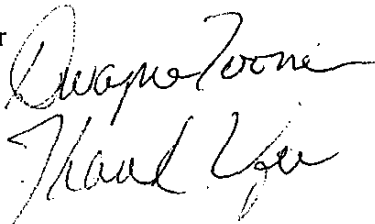 r
Dwayne Toone
Thank You